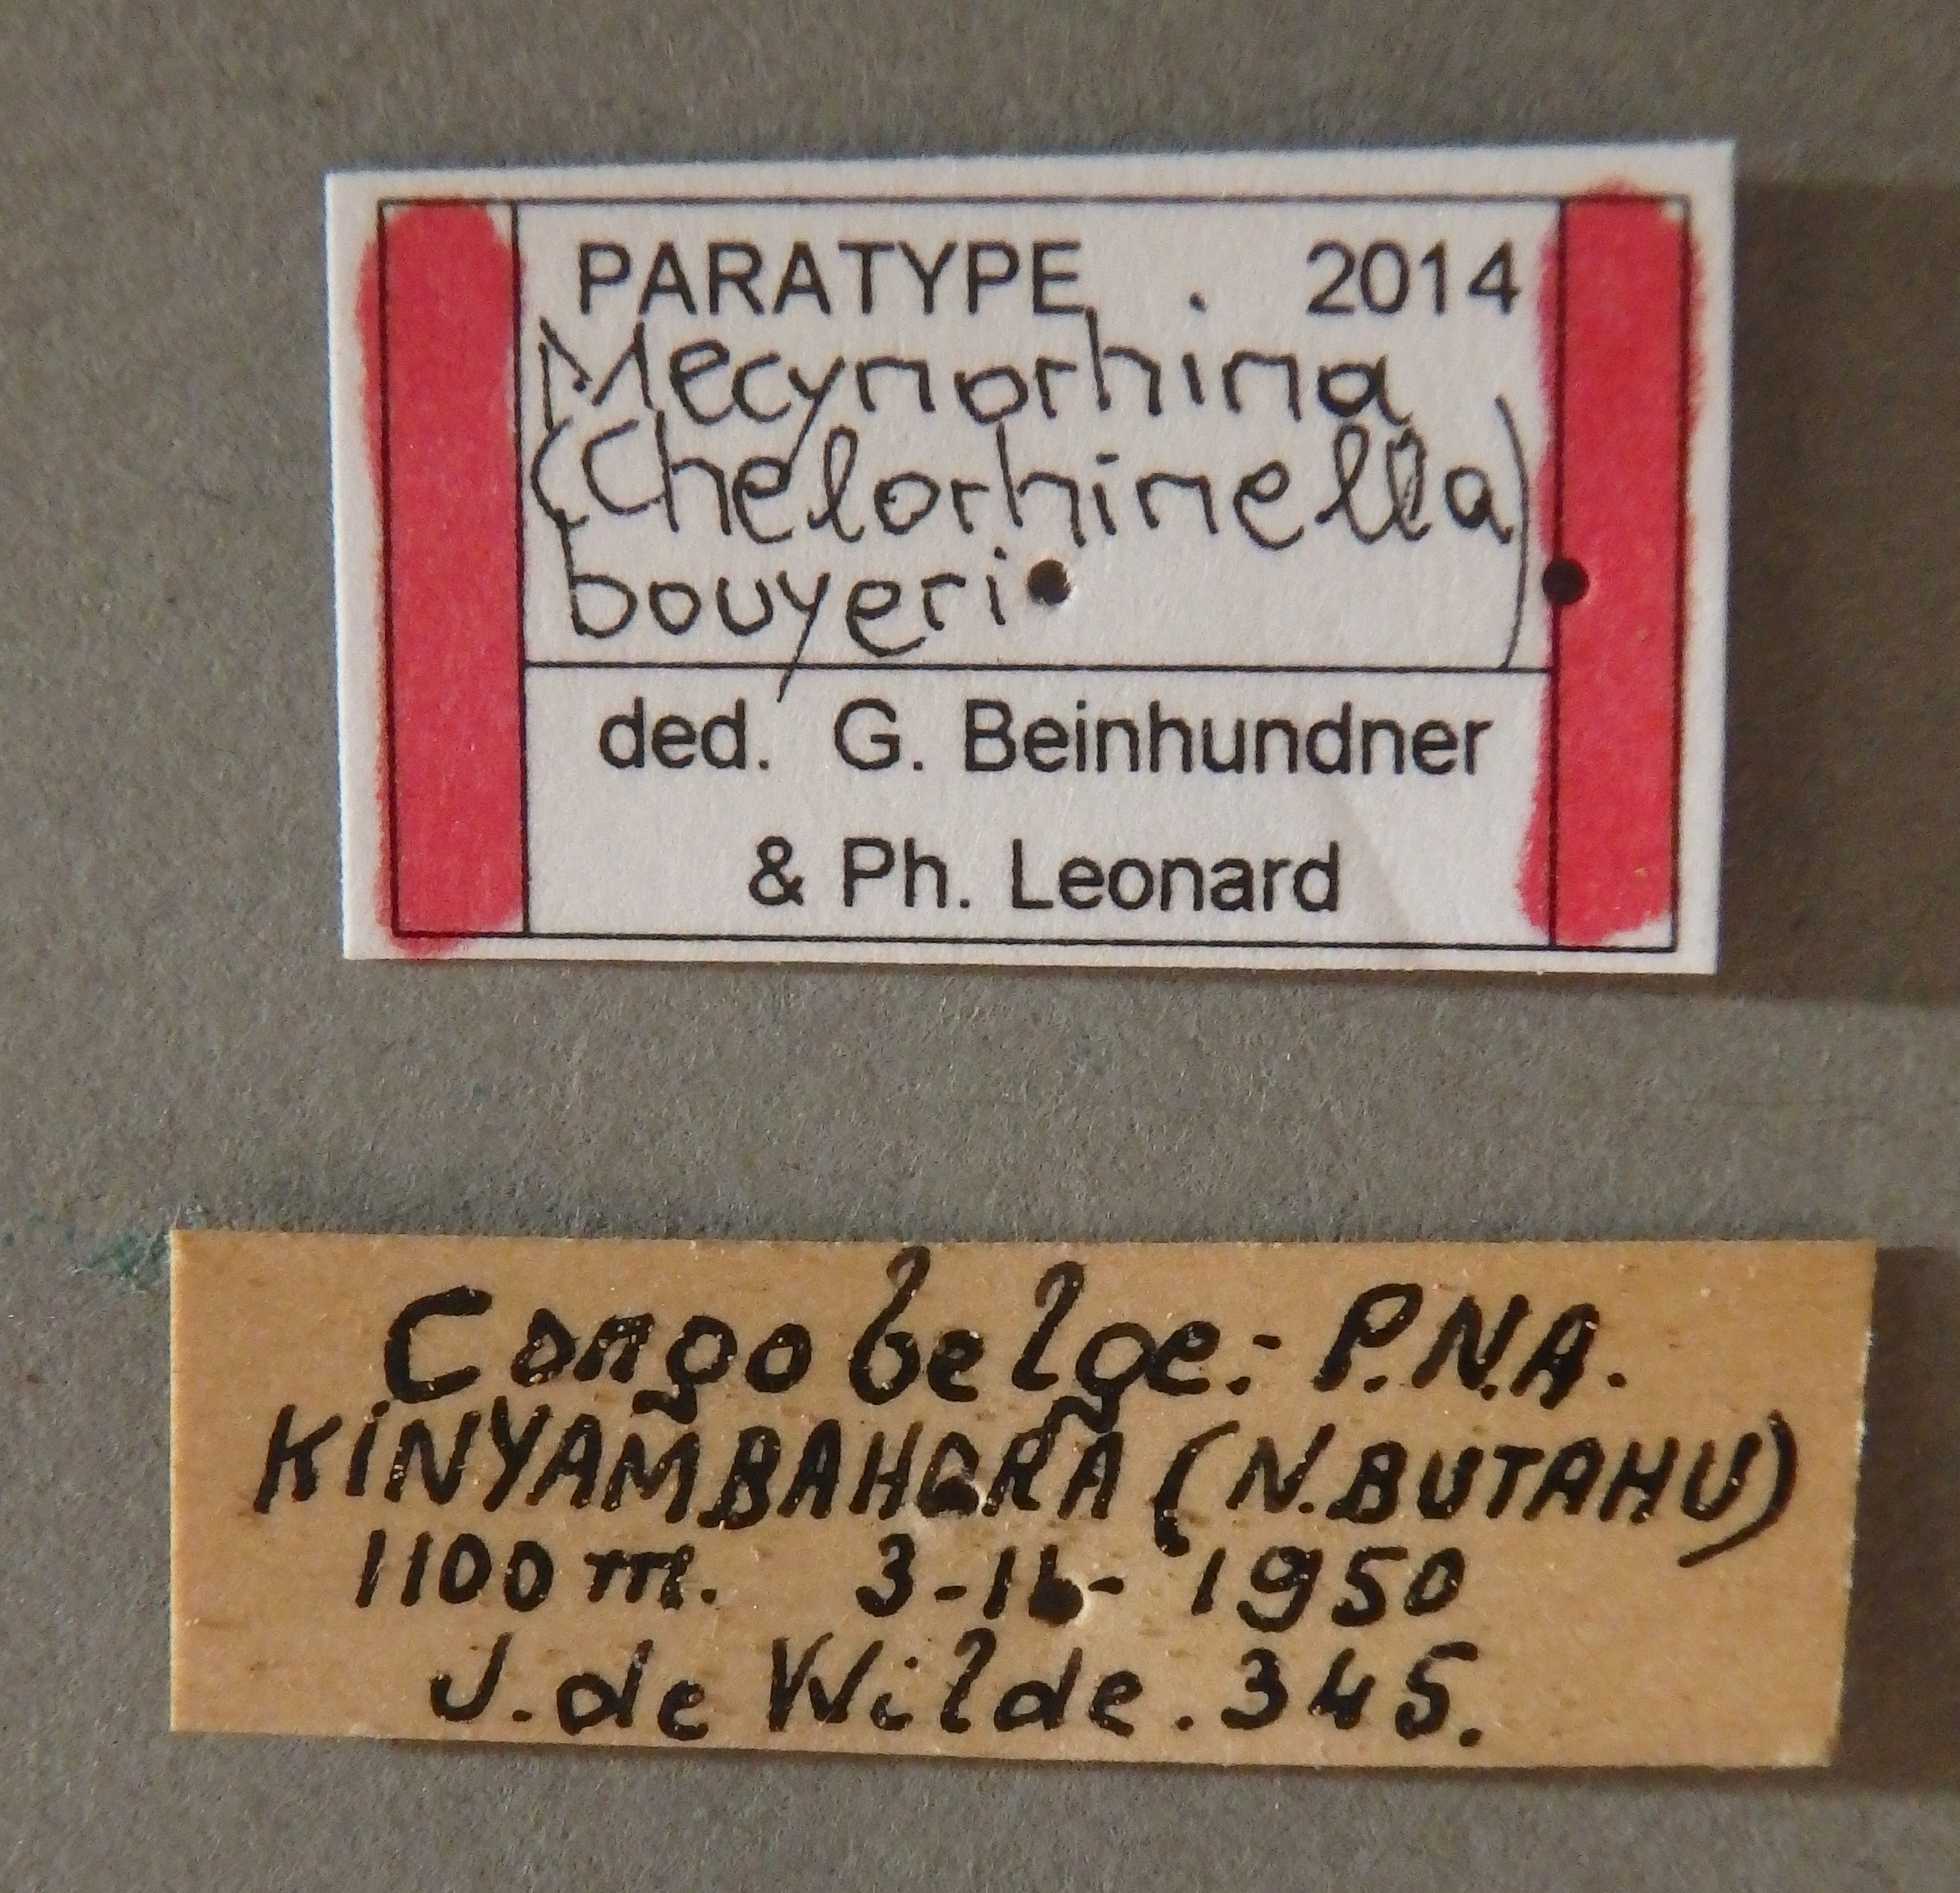 PARATYPE . 2014
Mecynorhina
(Chelorhinella)
bouyeri
ded. G. Beinhundner
& Ph. Leonard
Congo belge: P.N.A.
KINYAMBAHORA (N.BUTAHU)
1100 m. 1950
J. de Wilde. 345.